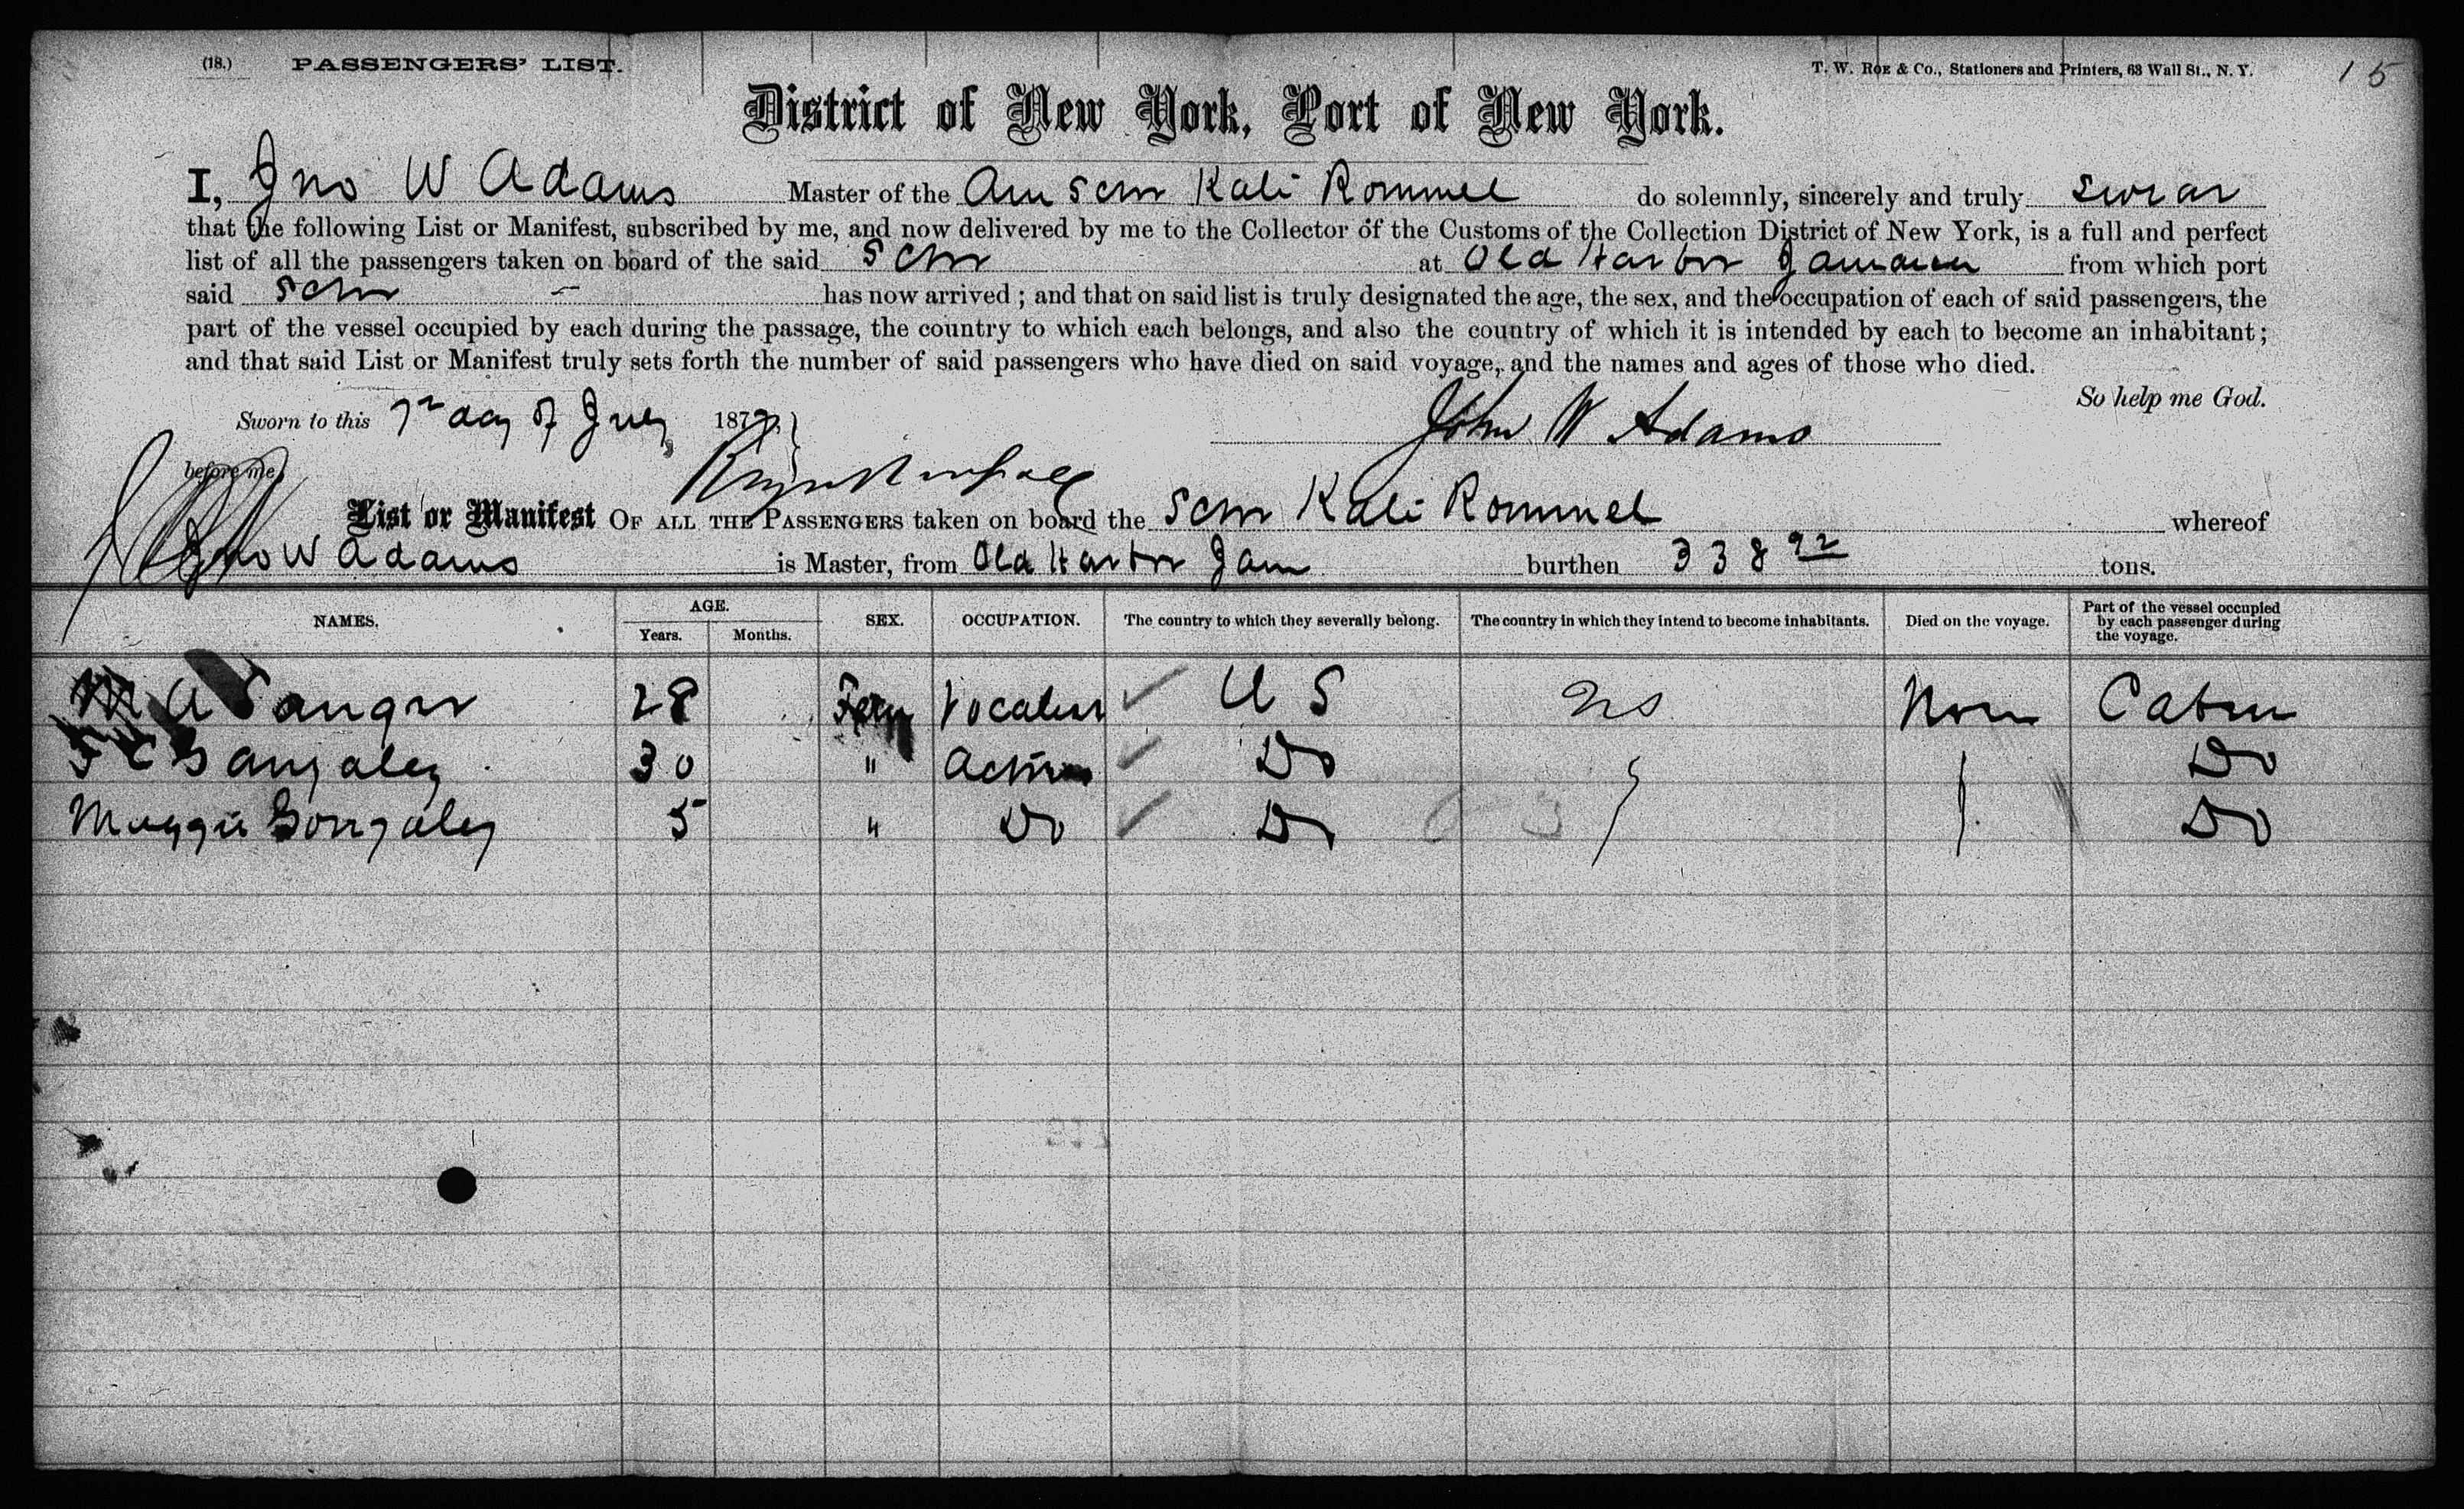 (18.) PASSENGERS' LIST.
T. W. ROE & Co., Stationers and Printers, 63 Wall St., N. Y.
15
District of New York, Port of New York.
I, Jno W Adams Master of the Am Schr Kate Rommel do solemnly, sincerely and truly swear
that the following List or Manifest, subscribed by me, and now delivered by me to the Collector of the Customs of the Collection District of New York, is a full and perfect
list of all the passengers taken on board of the said Schr at Old Harbor Jamaica from which port
said Schr has now arrived; and that on said list is truly designated the age, the sex, and the occupation of each of said passengers, the
part of the vessel occupied by each during the passage, the country to which each belongs, and also the country of which it is intended by each to become an inhabitant;
and that said List or Manifest truly sets forth the number of said passengers who have died on said voyage, and the names and ages of those who died.
So help me God.
Sworn to this 7th day of 187
John W Adams
before me
List or Manifest OF ALL THE PASSENGERS taken on board the Schr Kate Rommel whereof
Jno W Adams is Master, from Old Harbor Jam burthen 338 92 tons.
NAMES. AGE. Years. Months. SEX. OCCUPATION. The country to which they severally belong. The country in which they intend to become inhabitants. Died on the voyage. Part of the vessel occupied by each passenger during the voyage.
M A Sanger 28 Fem Vocalist U S US None Cabin
F C Gonzalez 30 " Actress Do Do
Maggie Gonzalez 5 " Do Do Do